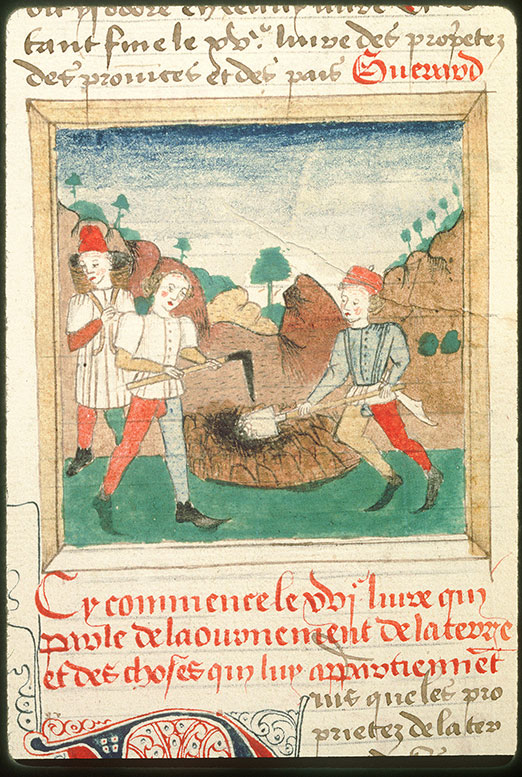 tant fine le xv.e liure des propetez
des prouinces et des pais Guerard
Cy commence le xvj.e liure qui
parle de la ournement de la terre
et des choses qui luy appartiennẽt
uis que les pro
prietez de la ter